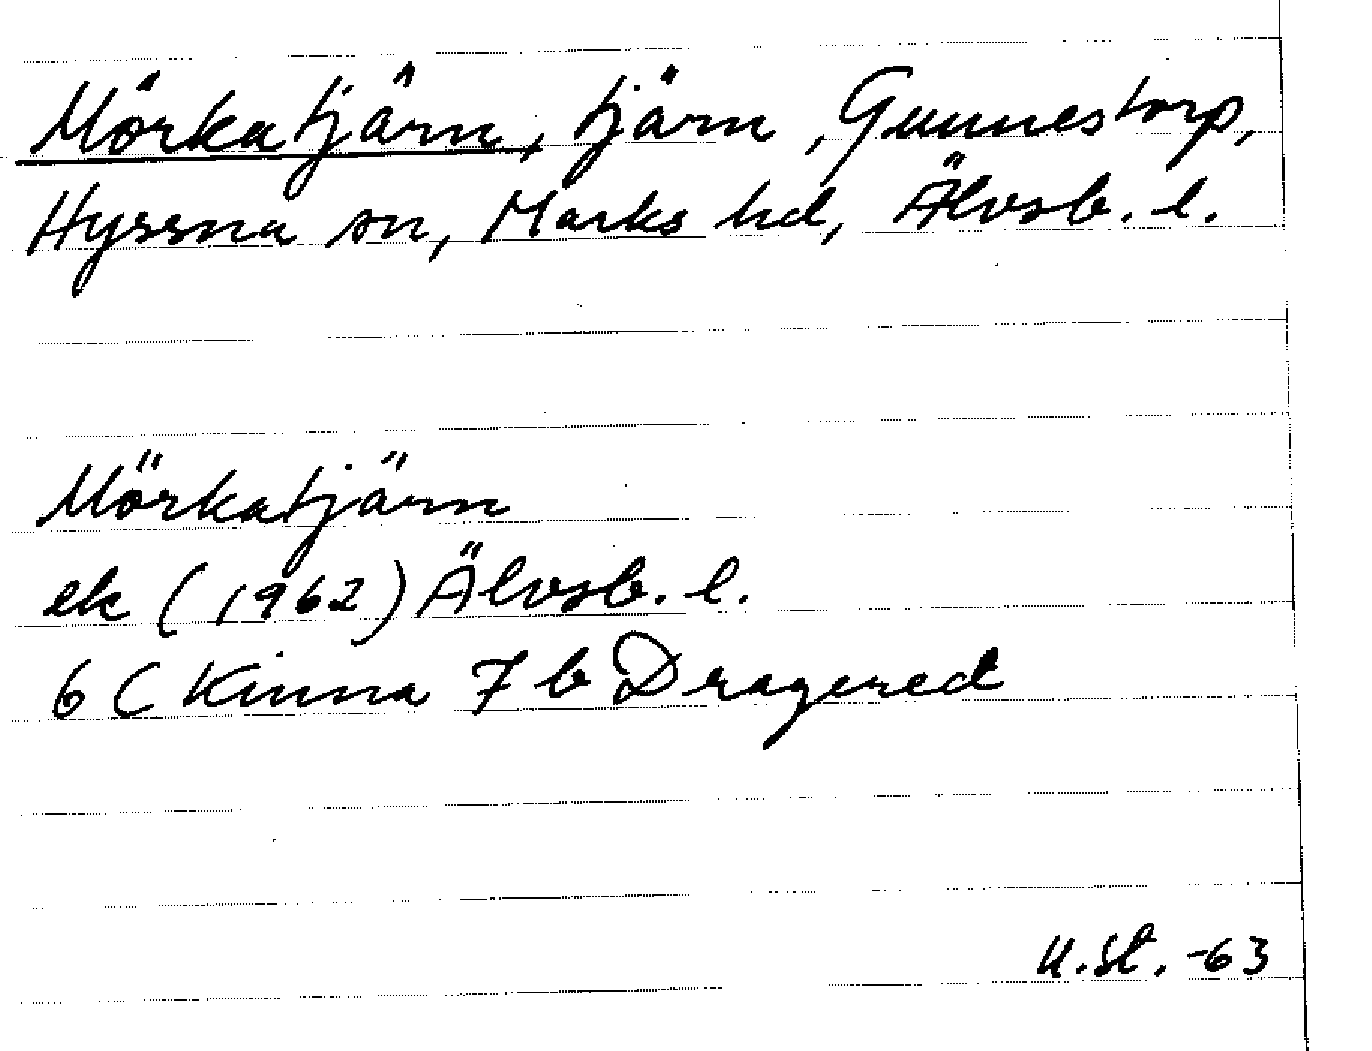 Mörkatjärn, tjärn, Gunnestorp,
Hyssna sn, Marks hd, Älvsb. l.
Mörkatjärn
ek (1962) Älvsb. l.
6 C Kinna 7 b Dragered
U.St. -63